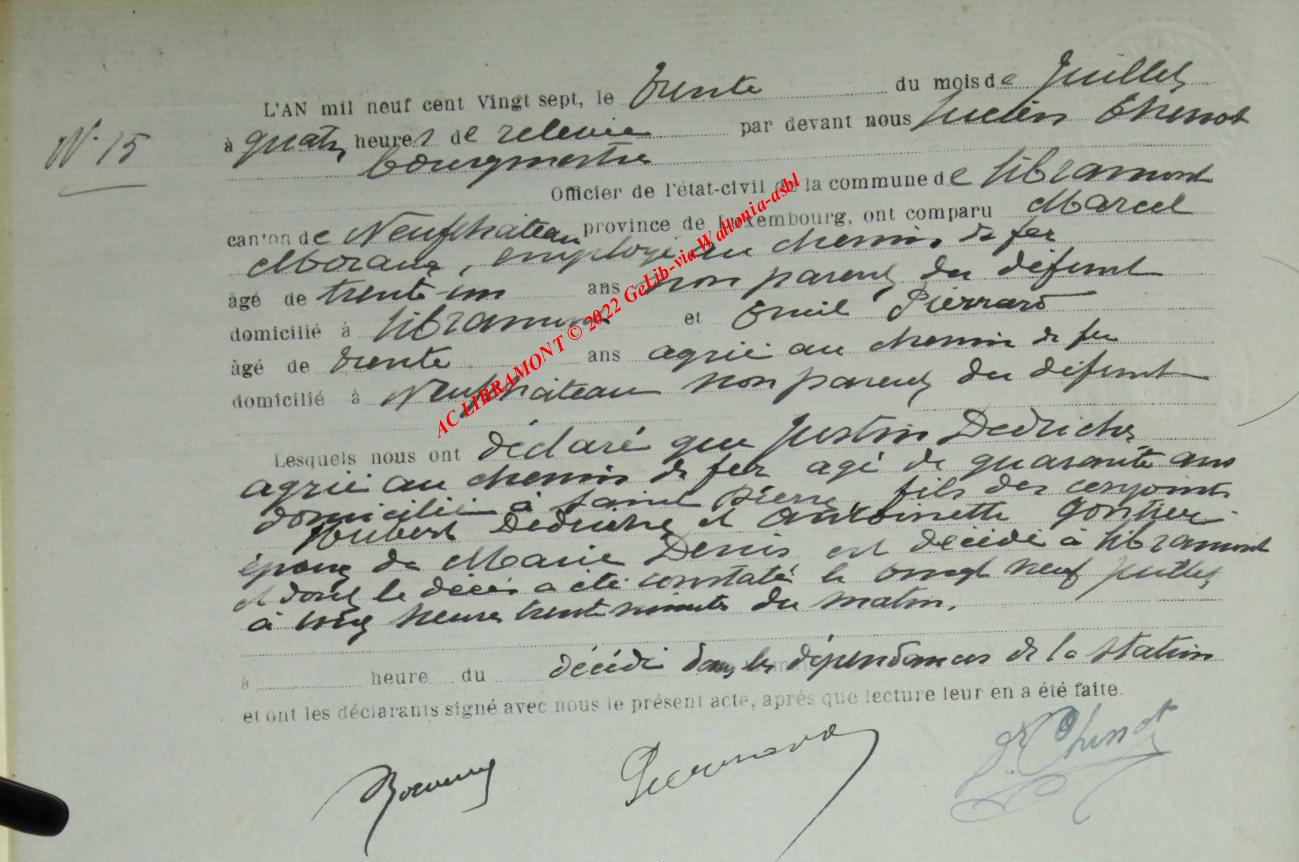 L'AN mil neuf cent Vingt sept, le trente du mois de Juillet
N° 15
à quatre heures de relevée par devant nous Lucien Thenot
bourgmestre
Officier de l'état-civil de la commune de Libramont
canton de Neufchâteau province de Luxembourg, ont comparu Marcel
employé au chemin de fer
âgé de trente-un ans non parent du défunt
domicilié à Libramont et Emile Pierrard
âgé de trente ans agréé au chemin de fer
domicilié à Neufchâteau non parent du défunt
Lesquels nous ont déclaré que Justin Dedriche
agréé au chemin de fer agé de quarante ans
domicilié à Saint Pierre, fils des conjoints
Hubert Dedriche et Antoinette
époux de Marie Denis est décédé à Libramont
et dont le décès a été constaté le vingt neuf Juillet
à cinq heures trente minutes du matin.
à heure du décédé dans les dépendances de la station
et ont les déclarants signé avec nous le présent acte, après que lecture leur en a été faite.
AC LIBRAMONT © 2022 GeLib-via Wallonia-asbl